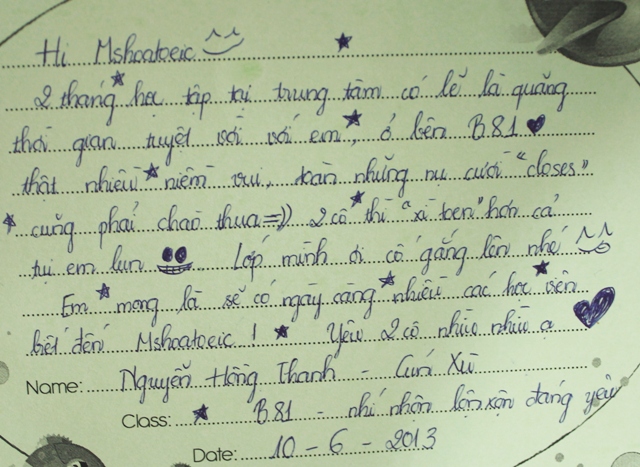 Hi Mshoatoeic
2 tháng học tập tại trung tâm có lẽ là quãng
thời gian tuyệt vời với em, ở bên B81
thật nhiều niềm vui, toàn những nụ cười "closes"
cũng phải chào thua =)) 2 cô thì "xì teen" hơn cả
tụi em lun Lớp mình ơi cố gắng lên nhé
Em mong là sẽ có ngày càng nhiều các học viên
biết đến Mshoatoeic ! Yêu 2 cô nhìu nhìu ạ
Name: Nguyễn Hồng Thanh - Xù
Class: B81 - nhí nhôn lộn xộn đáng yêu
Date: 10 - 6 - 2013